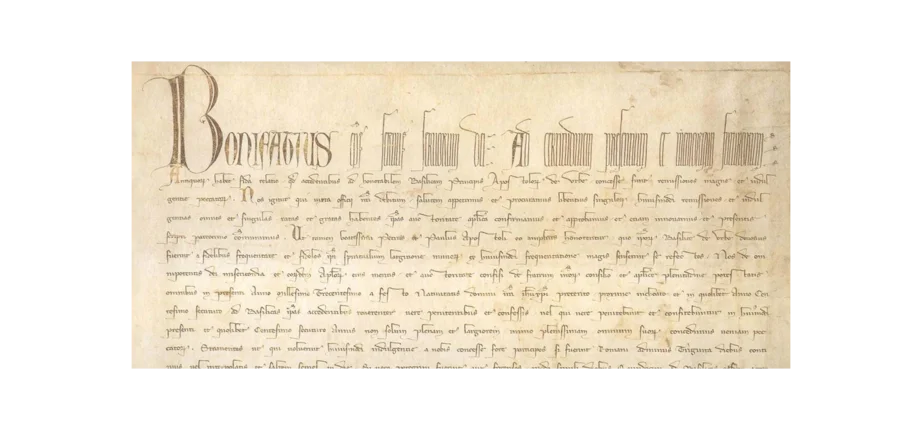 Bonifatius eps servus servorum dei Ad certitudinem presentium et memoriam futurorum
Antiquor habet fida relatio qd accedentibus ad honorabilem Basilicam Principis Apostolor de Urbe concesse sunt remissiones magne et indul
gentie peccator. Nos igitur qui iuxta officii nri debitum salutem appetimus et procuramus libentius singulor huiusmodi remissiones et indul
gentias omnes et singulas ratas et gratas habentes ipas auctoritate aplica confirmamus et approbamus et etiam innovamus et presentis
scripti patrocinio communimus. Ut tamen beatissimi Petrus et Paulus Apostoli eo amplius honorentur quo ipor Basilice de Urbe devotius
fuerint a fidelibus frequentate et fideles ipi spiritualium largitione muner ex huiusmodi frequentatione magis senserint se refectos Nos de om
nipotentis dei misericordia et eordem Aplor eius meritis et auctoritate confisi de fratrum nror consilio et aplice plenitudine potestatis
omnibus in presenti Anno Millesimo Trecentesimo a festo Nativitatis domini nri ihu xpi preterito proxime inchoato et in quolibet Anno Cen
tesimo secuturo ad Basilicas ipas accedentibus reverenter vere penitentibus et confessis vel qui vere penitebunt et confitebuntur in huiusmodi
presenti et quolibet Centesimo secuturo Annis non solum plenam et largiorem immo plenissimam omnium suor concedimus veniam pec
cator. Statuentes ut qui voluerint huiusmodi indulgentie a nobis concesse fore participes si fuerint Romani adminus Triginta diebus conti